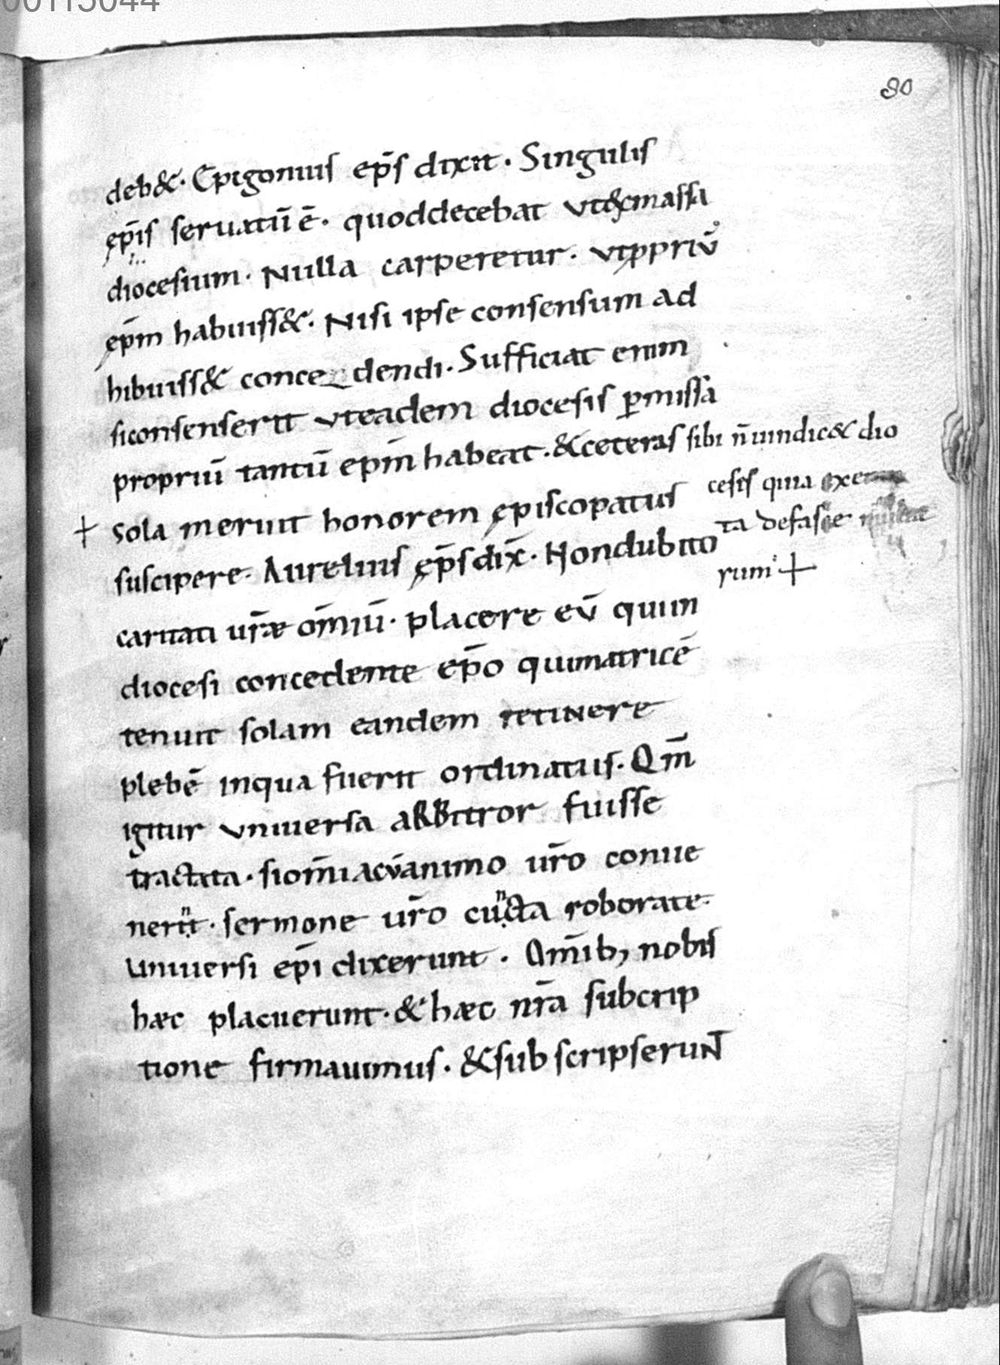 00113044
80
deb&. Epigonius ep̄s dixit. Singulis
ęp̄is seruatū ē. quod decebat ut exmassa
diocesium. Nulla carperetur. utppriū
ep̄m habuiss&. Nisi ipse consensum ad
hibuiss& concedendi. Sufficiat enim
siconsenserit uteadem diocesis p̄missa
propriū tantū epm̄ habeat. &ceteras sibi n̄ uindic& dio
cesis quia exem
+ sola meruit honorem ępiscopatus
ta defasce
suscipere. Aurelius ęp̄s dix̄. Nondubito
rum +
caritati ur̄æ om̄iū. placere eū quiin
diocesi concedente ep̄o quimatricē
tenuit solam eandem retinere
plebē inqua fuerit ordinatus. Qm̄
igitur uniuersa aRBitror fuisse
tractata. siom̄i acū animo ur̄o conue
nerit. sermone ur̄o cuncta roborate.
Uniuersi ep̄i dixerunt. Om̄ib; nobis
hæc placuerunt. & hæc nr̄a subcrip
tione firmauimus. &sub scripseruNT